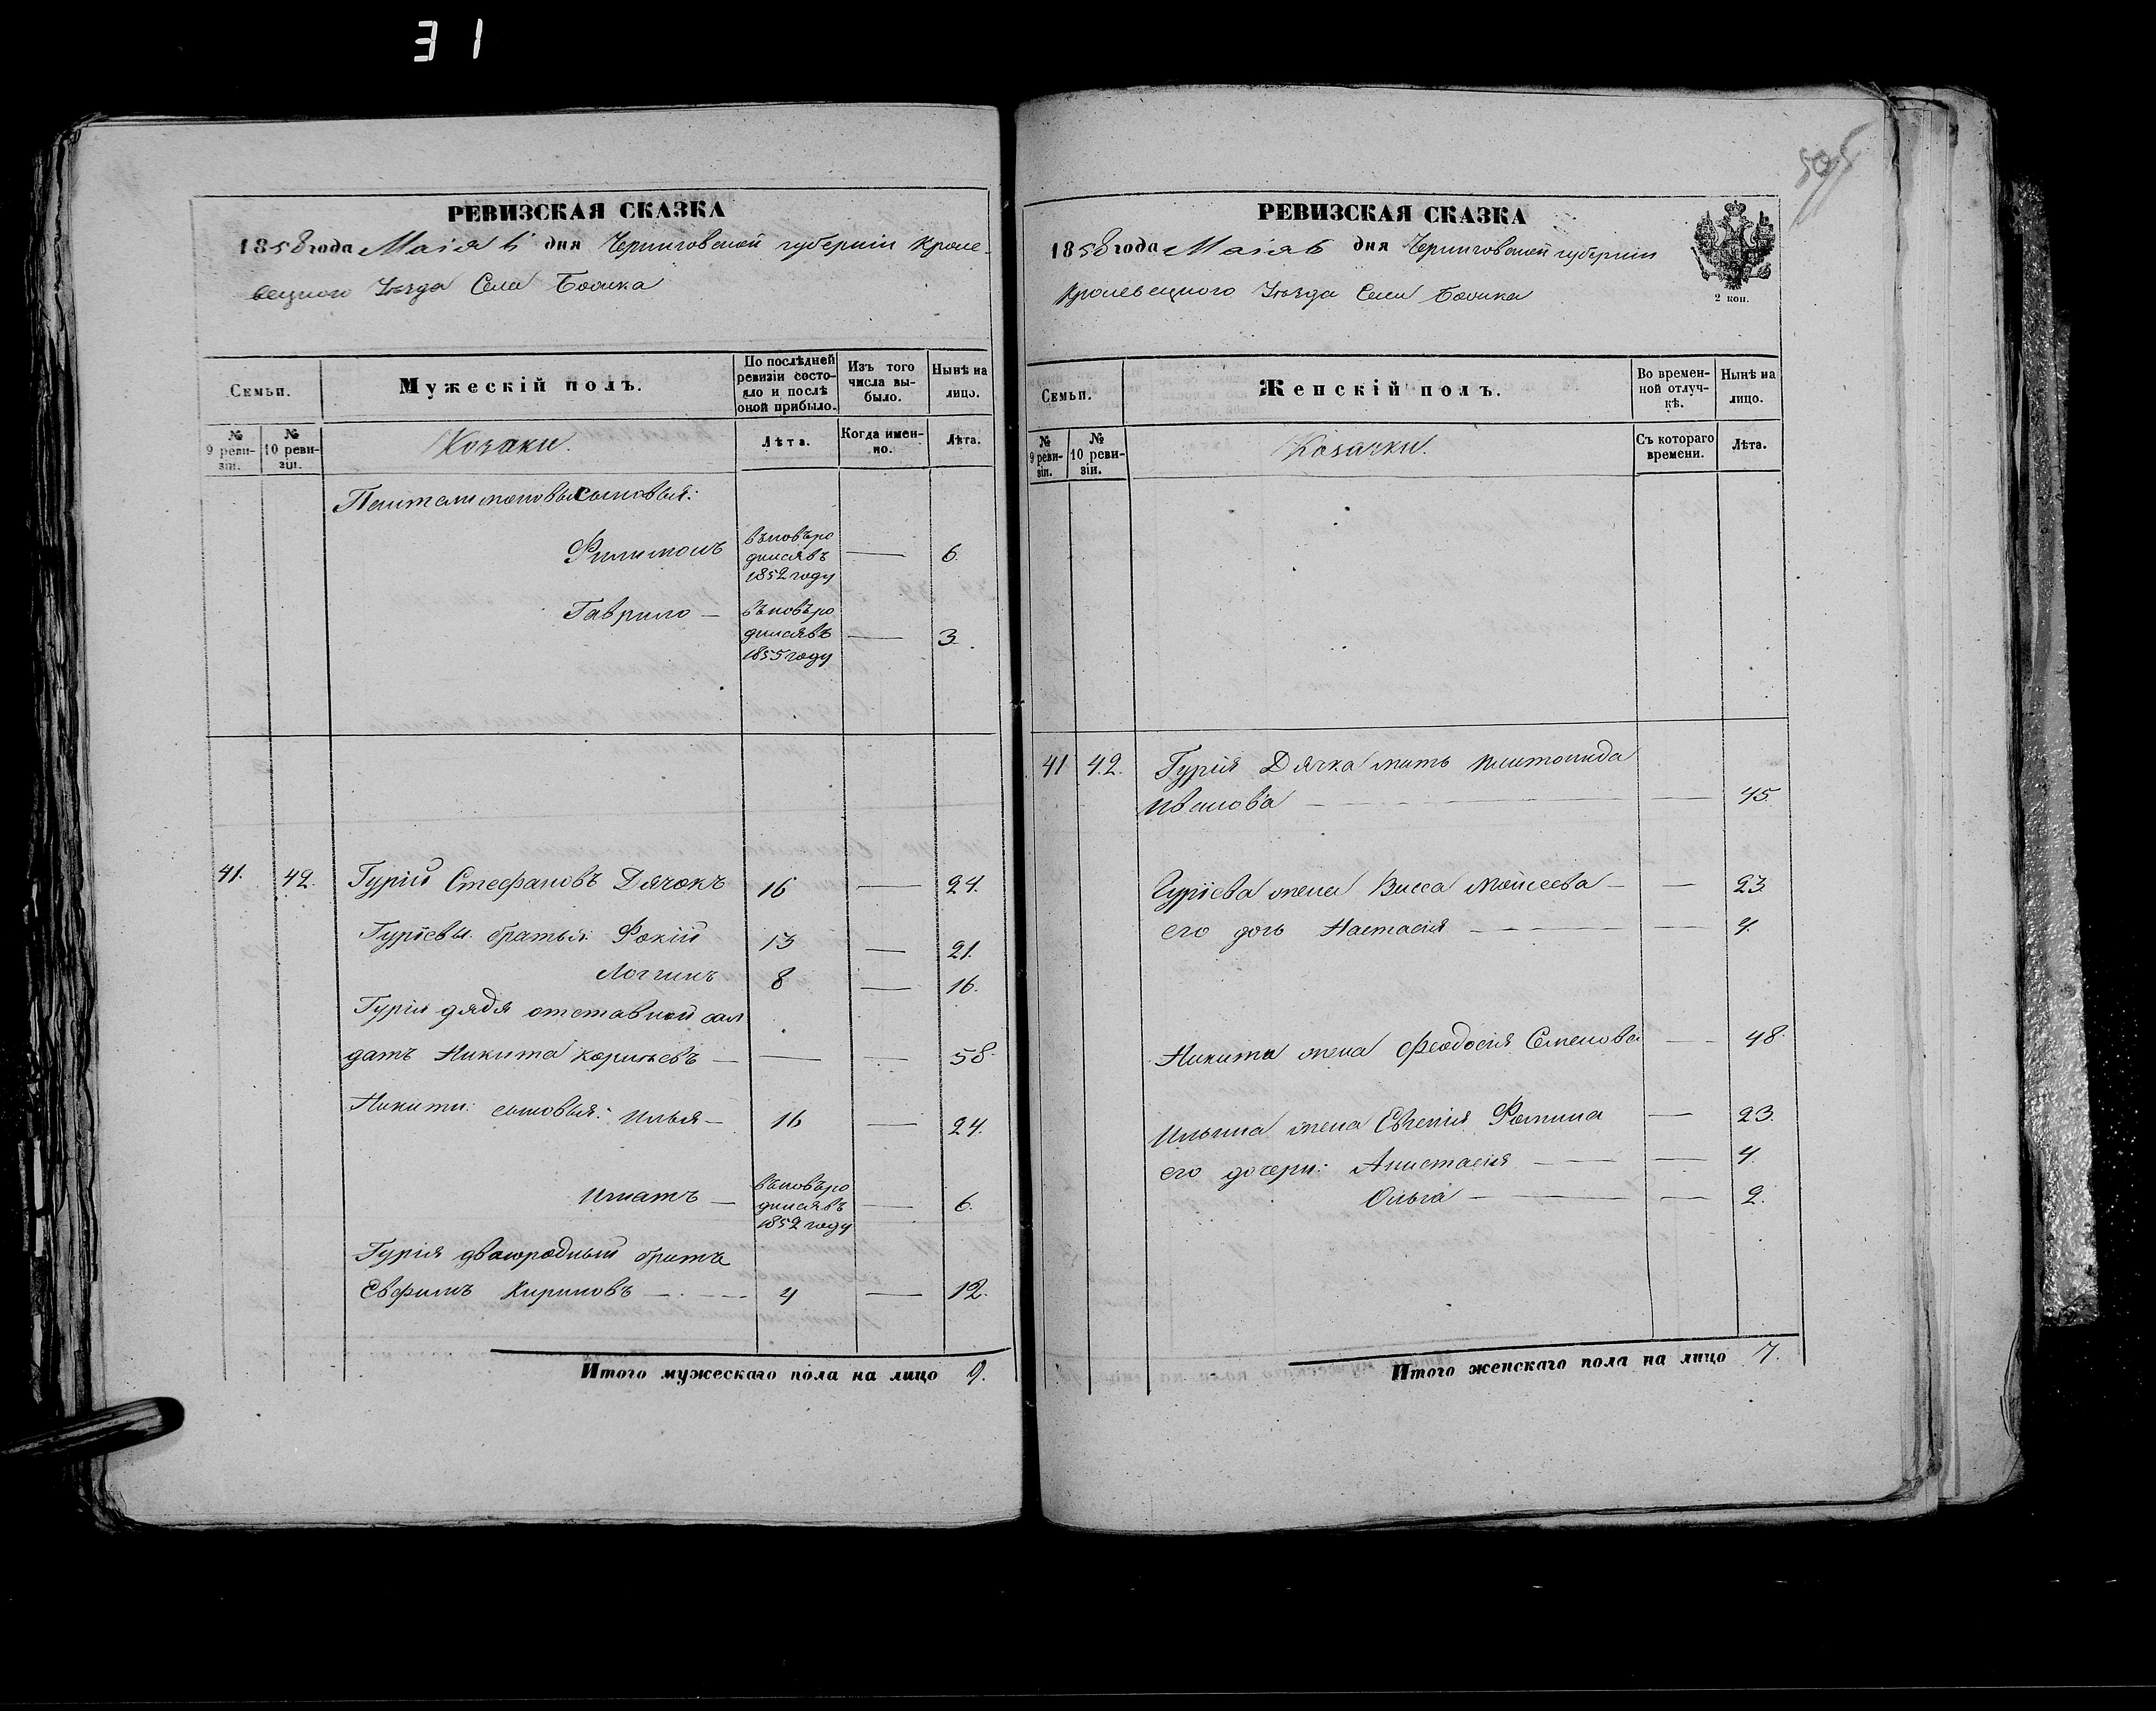 31
505
РЕВИЗСКАЯ СКАЗКА
1858 года Маія 6 дня Черниговской губерніи Кроле-
вецкого Уѣзда Села
Семьи.
Мужескій полъ.
По послѣдней ревизіи состо-
яло и послѣ
оной прибыло.
Изъ того
числа вы-
было.
Нынѣ на
лицо.
№
9 реви-
зіи.
№
10 реви-
зіи.
Козаки.
Лѣта.
Когда имен-
но.
Лѣта.
Пантелимоновы сыновья:
Филимонъ
вновьро
дился въ
1852 году
— 6.
Гаврило —
вновьро
дился въ
1855 году
— 3.
41. 42. Гурій Стефановъ Дячокъ 16 — 24.
Гуріевы братья: Фокій 13 — 21.
Логгинъ 8 — 16.
Гурія дядя отставной сол
датъ Никита Корніевъ — — — 58.
Никиты сыновья: Илья — 16 — 24.
Игнатъ —
вновьро
дился въ
1852 году
— 6.
Гурія двоюродный братъ
Евфимъ Кириловъ — 4 — 12.
Итого мужескаго пола на лицо 9.
РЕВИЗСКАЯ СКАЗКА
1858 года Маія 6 дня Черниговской губерніи
Кролевецкого Уѣзда Села
2 коп.
Семьи.
Женскій полъ.
Во времен-
ной отлуч-
кѣ.
Нынѣ на
лицо.
№
9 реви-
зіи.
№
10 реви-
зіи.
Козачки.
Съ котораго
времени.
Лѣта.
41 42. Гурія Дячка мать
Иванова — — 45.
Гуріева жена Васса Моисеева — — 23.
его дочь Настасія — — 4.
Никиты жена Феодосія Семенова — 48.
Ильина жена Евгенія Фомина — 23.
его дочери: Анастасія — — 4.
Ольга — — 2.
Итого женскаго пола на лицо 7.